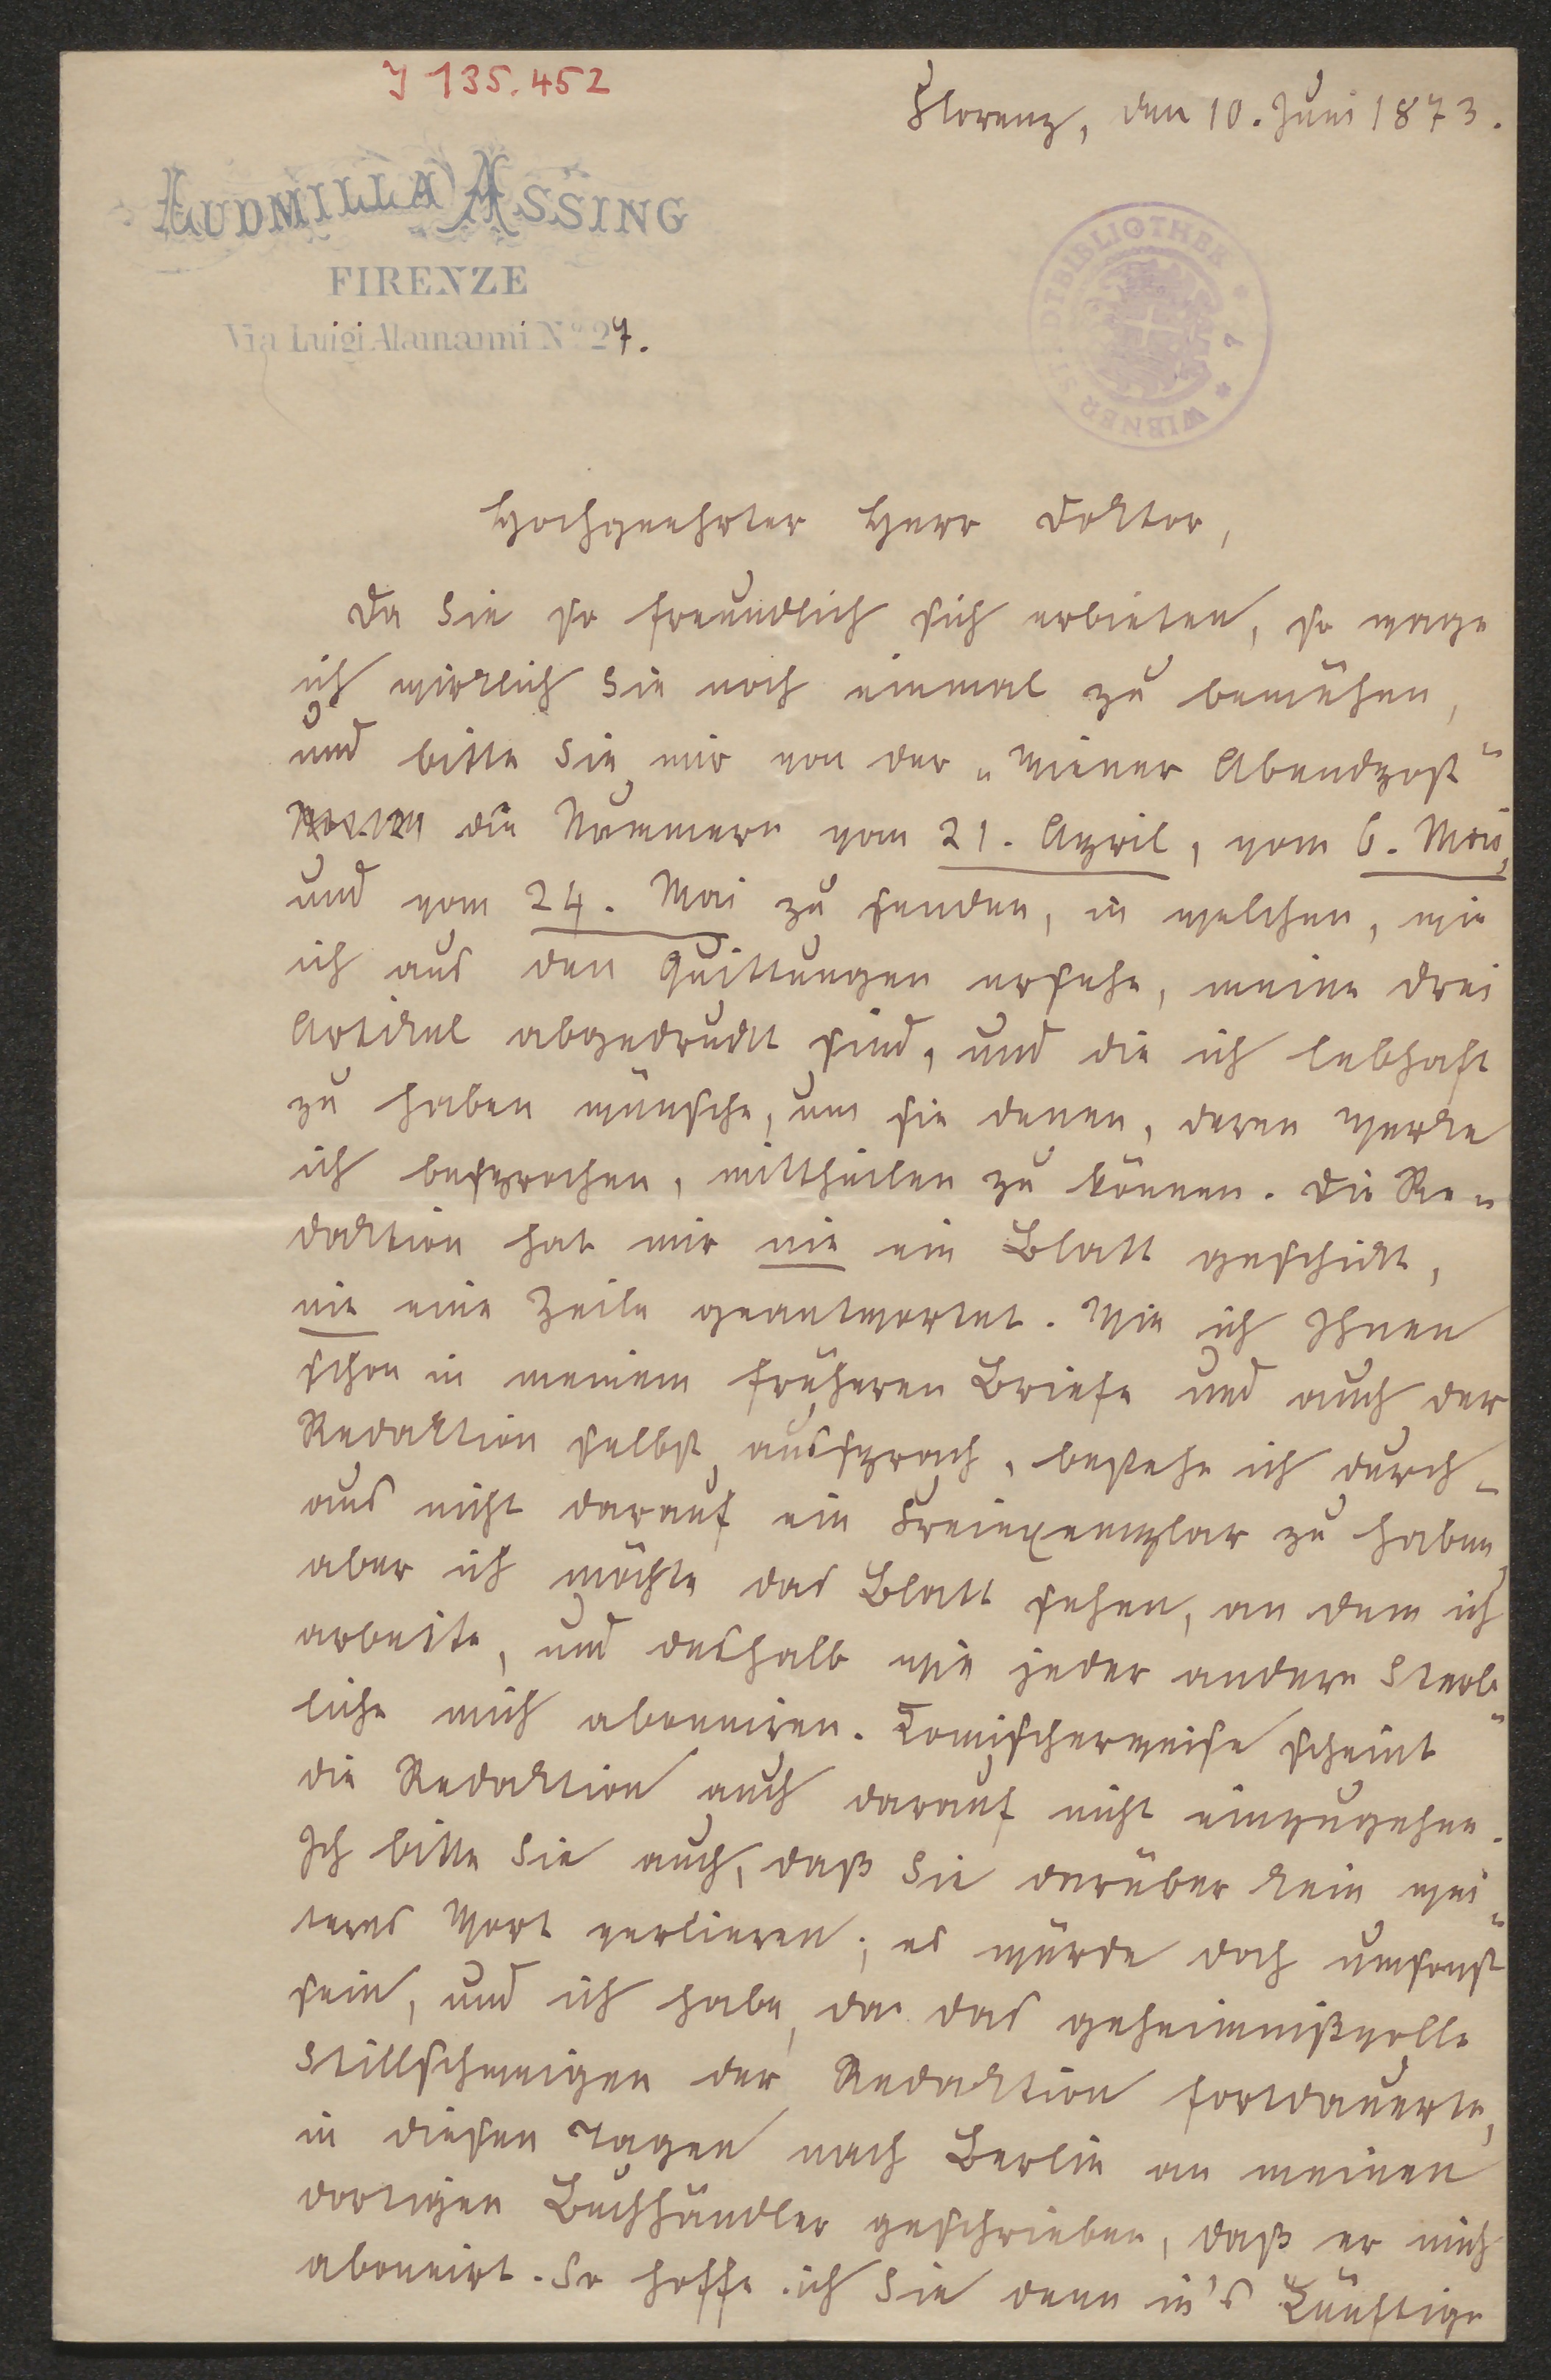 J 135.452
Florenz, den 10. Juni 1873.
LUDMILLA ASSING
FIRENZE
Via Luigi Alamanni No 27.
WIENER STADTBIBLIOTHEK
Hochgeehrter Herr Doktor,
Da Sie so freundlich sich erbieten, so wage
ich wirklich Sie noch einmal zu bemühen,
und bitte Sie, mir von der „Wiener Abendpost"
die Nummern vom 21. April, vom 6. Mai,
und vom 24. Mai zu senden, in welchen, wie
ich aus den Quittungen ersehe, meine drei
Artikel abgedruckt sind, und die ich lebhaft
zu haben wünsche, um sie denen, deren Werke
ich besprochen, mittheilen zu können. Die Re-
daktion hat mir nie ein Blatt geschickt,
nie eine Zeile geantwortet. Wie ich Ihnen
schon in meinem früheren Briefe und auch der
Redaktion selbst aussprach, bestehe ich durch-
aus nicht darauf ein Freiexemplar zu haben,
aber ich möchte das Blatt sehen, an dem ich
arbeite, und deshalb wie jeder andere Sterb-
liche mich abonniren. Komischerweise scheint
die Redaktion auch darauf nicht einzugehen.
Ich bitte Sie auch, daß Sie darüber kein wei-
teres Wort verlieren; es würde doch umsonst
sein, und ich habe, da das geheimnißvolle
Stillschweigen der Redaktion fortdauerte,
in diesen Tagen nach Berlin an meinen
dortigen Buchhändler geschrieben, daß er mich
abonnirt. So hoffe ich Sie denn in's Künftige